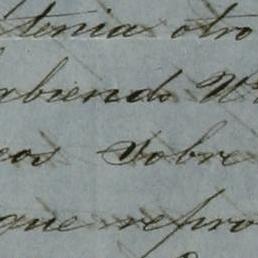 tenia otro
abiendo
eos sobre
que repro